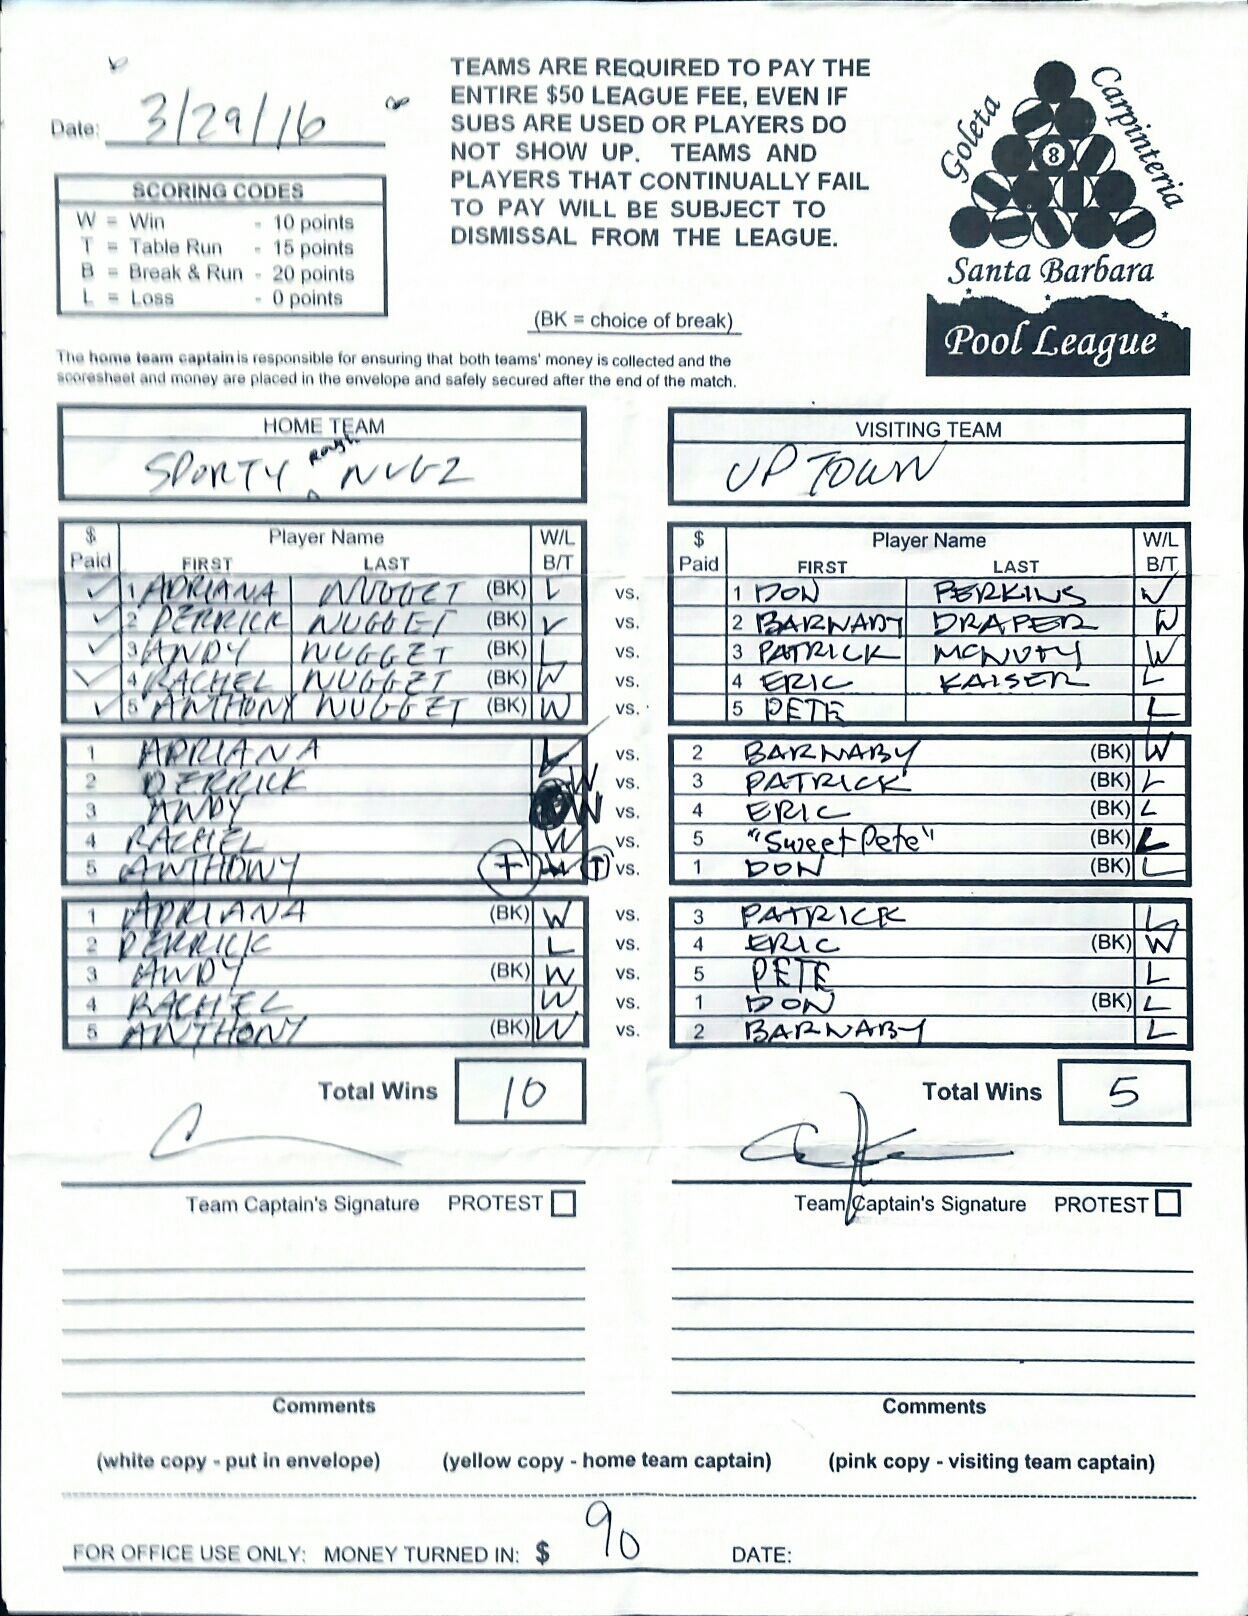 Date: 3/29/16
TEAMS ARE REQUIRED TO PAY THE
ENTIRE $50 LEAGUE FEE, EVEN IF
SUBS ARE USED OR PLAYERS DO
NOT SHOW UP. TEAMS AND
PLAYERS THAT CONTINUALLY FAIL
TO PAY WILL BE SUBJECT TO
DISMISSAL FROM THE LEAGUE.
Goleta
Carpinteria
8
Santa Barbara
Pool League
SCORING CODES
W = Win - 10 points
T = Table Run - 15 points
B = Break & Run - 20 points
L = Loss - 0 points
(BK = choice of break)
The home team captain is responsible for ensuring that both teams' money is collected and the
scoresheet and money are placed in the envelope and safely secured after the end of the match.
HOME TEAM VISITING TEAM
SPORTY rough NUGZ UPTOWN
$ Player Name W/L $ Player Name W/L
Paid FIRST LAST B/T Paid FIRST LAST B/T
✓ 1 ADRIANA NUGGET (BK) L vs. 1 DON PERKINS W
✓ 2 DERRICK NUGGET (BK) L vs. 2 BARNABY DRAPER W
✓ 3 ANDY NUGGET (BK) L vs. 3 PATRICK MCNUTY W
✓ 4 RACHEL NUGGET (BK) W vs. 4 ERIC KAISER L
✓ 5 ANTHONY NUGGET (BK) W vs. 5 PETE L
1 ADRIANA L vs. 2 BARNABY (BK) W
2 DERRICK W vs. 3 PATRICK (BK) L
3 ANDY W vs. 4 ERIC (BK) L
4 RACHEL W vs. 5 "Sweet Pete" (BK) L
5 ANTHONY T W T vs. 1 DON (BK) L
1 ADRIANA (BK) W vs. 3 PATRICK L
2 DERRICK L vs. 4 ERIC (BK) W
3 ANDY (BK) W vs. 5 PETE L
4 RACHEL W vs. 1 DON (BK) L
5 ANTHONY (BK) W vs. 2 BARNABY L
Total Wins 10 Total Wins 5
Team Captain's Signature PROTEST Team Captain's Signature PROTEST
Comments Comments
(white copy - put in envelope) (yellow copy - home team captain) (pink copy - visiting team captain)
FOR OFFICE USE ONLY: MONEY TURNED IN: $ 90 DATE: